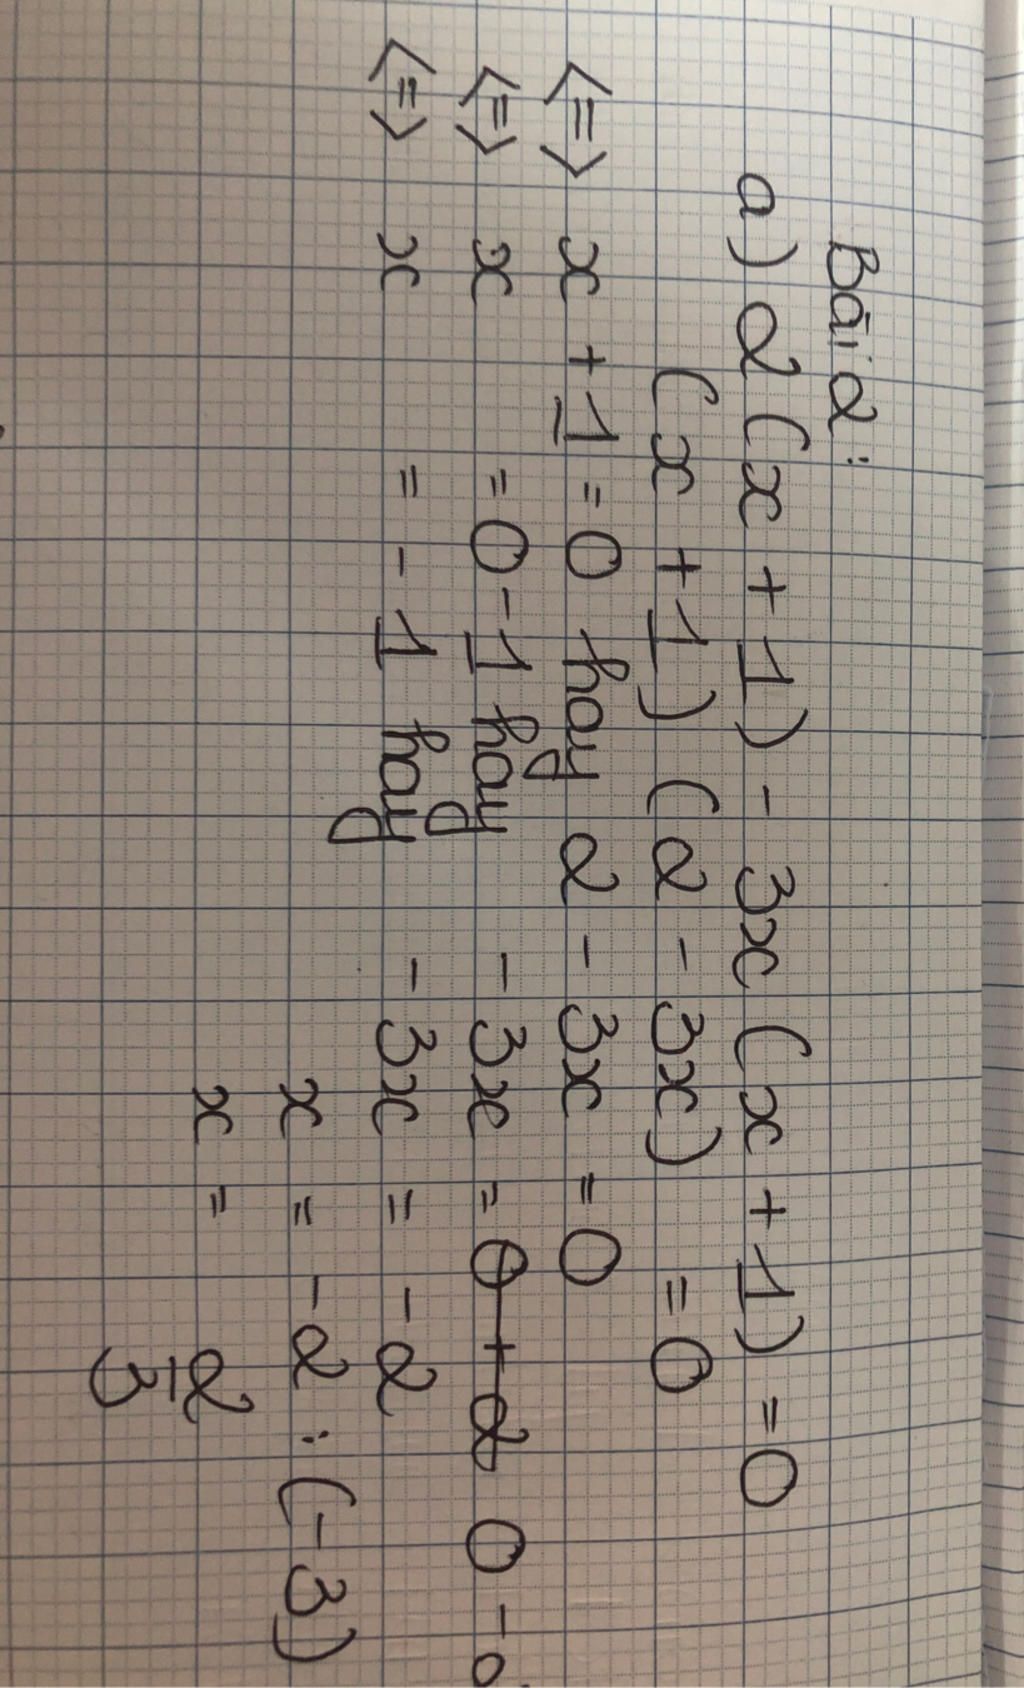 Bài 2:
a) 2(x + 1) - 3x(x + 1) = 0
(x + 1)(2 - 3x) = 0
<=> x + 1 = 0 hay 2 - 3x = 0
<=> x = 0 - 1 hay - 3x = 0 + 2 0 -
<=> x = - 1 hay - 3x = - 2
x = - 2 : (-3)
x = 2/3